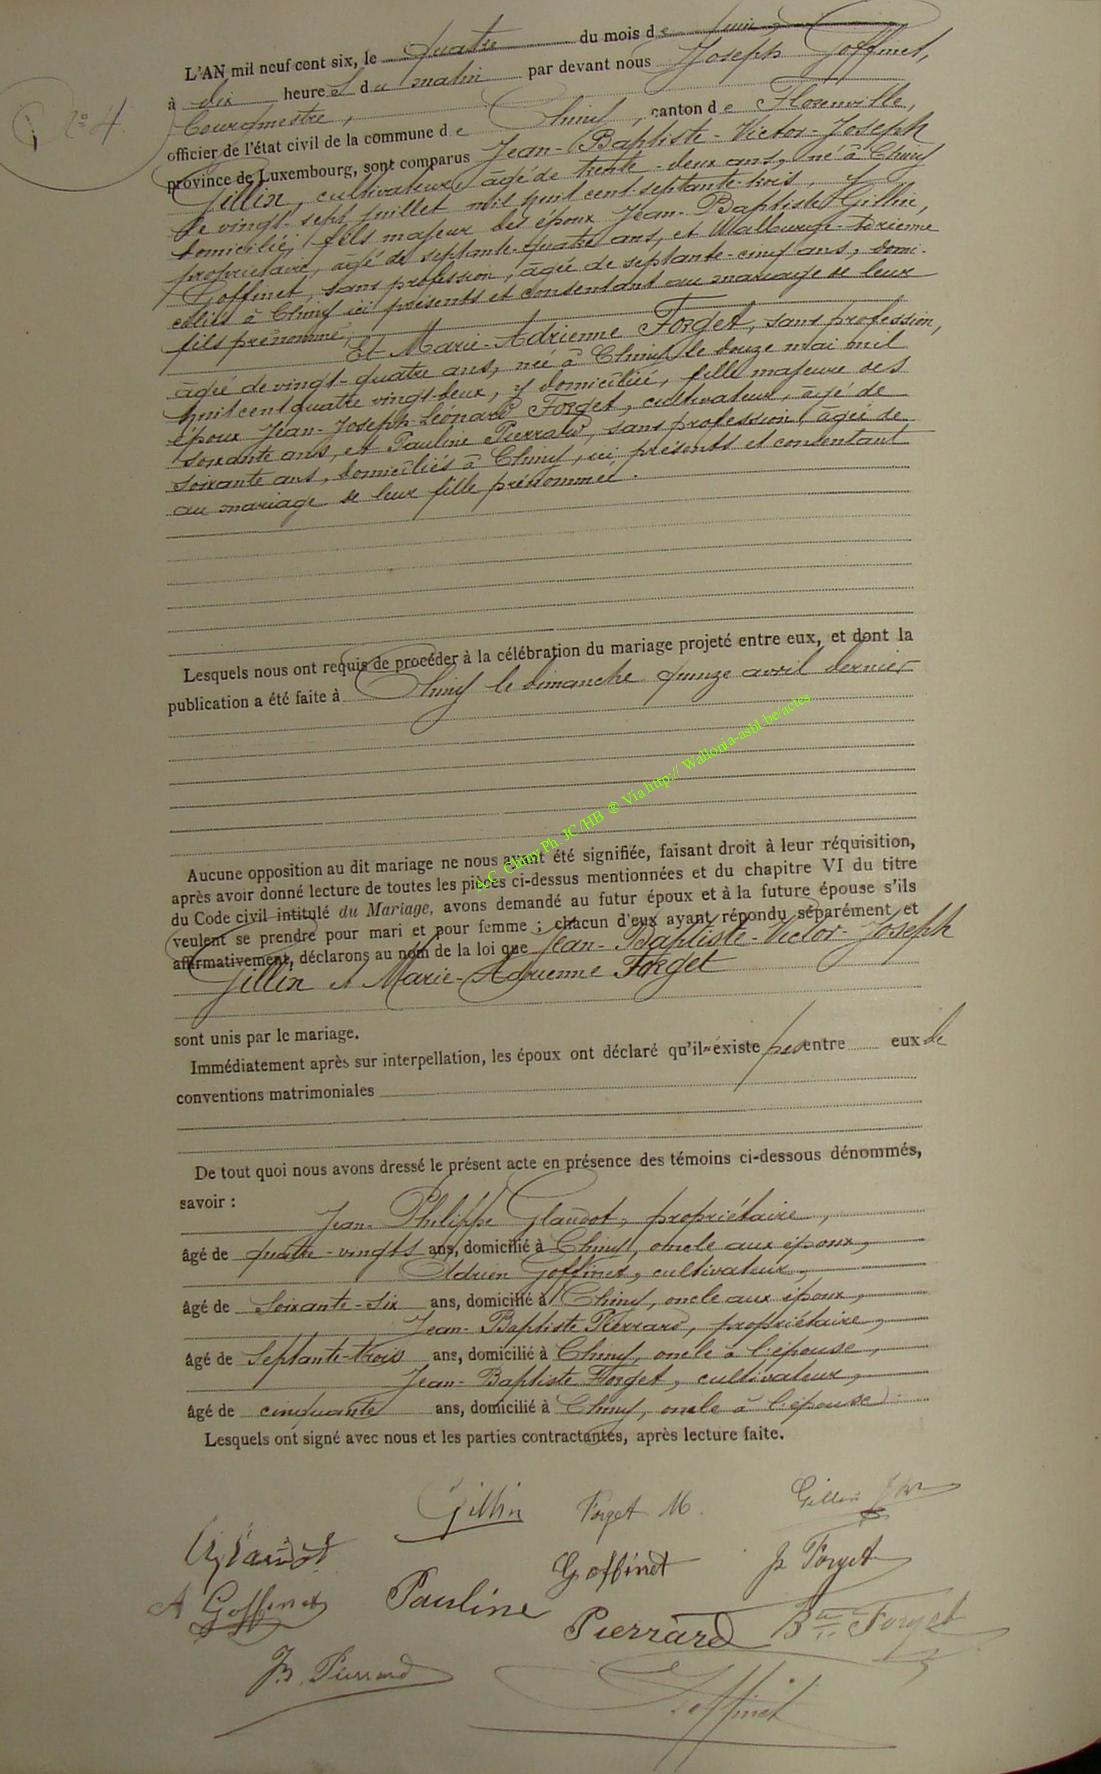 N° 4
L'AN mil neuf cent six, le quatre du mois de Juin,
à dix heures du matin par devant nous Joseph Goffinet,
Bourgmestre,
officier de l'état civil de la commune de Chiny, canton de Florenville,
province de Luxembourg, sont comparus Jean-Baptiste-Victor-Joseph
Gillin, cultivateur, âgé de trente-deux ans, né à Chiny
le vingt-sept juillet mil huit cent septante-trois, y
domicilié, fils majeur des époux Jean-Baptiste Gillin,
propriétaire, âgé de septante-quatre ans, et Walburge-Adrienne
Goffinet, sans profession, âgée de septante-cinq ans, domi-
ciliés à Chiny ici présents et consentant au mariage de leur
fils prénommé,
Et Marie-Adrienne Forget, sans profession,
âgée de vingt-quatre ans, née à Chiny le douze mai mil
huit cent quatre vingt-deux, y domiciliée, fille majeure des
époux Jean-Joseph-Léonard Forget, cultivateur, âgé de
soixante ans, et Pauline Pierrard, sans profession, âgée de
soixante ans, domiciliés à Chiny, ici présents et consentant
au mariage de leur fille prénommée.
Lesquels nous ont requis de procéder à la célébration du mariage projeté entre eux, et dont la
publication a été faite à Chiny le dimanche quinze avril dernier
Aucune opposition au dit mariage ne nous ayant été signifiée, faisant droit à leur réquisition,
après avoir donné lecture de toutes les pièces ci-dessus mentionnées et du chapitre VI du titre
du Code civil intitulé du Mariage, avons demandé au futur époux et à la future épouse s'ils
veulent se prendre pour mari et pour femme ; chacun d'eux ayant répondu séparément et
affirmativement, déclarons au nom de la loi que Jean-Baptiste-Victor-Joseph
Gillin et Marie-Adrienne Forget
sont unis par le mariage.
Immédiatement après sur interpellation, les époux ont déclaré qu'il n'existe pas entre eux de
conventions matrimoniales
De tout quoi nous avons dressé le présent acte en présence des témoins ci-dessous dénommés,
savoir :
Jean-Philippe Glaudot, propriétaire,
âgé de quatre-vingts ans, domicilié à Chiny, oncle aux époux,
Adrien Goffinet, cultivateur,
âgé de soixante-six ans, domicilié à Chiny, oncle aux époux,
Jean-Baptiste Pierrard, propriétaire,
âgé de septante-trois ans, domicilié à Chiny, oncle à l'épouse,
Jean-Baptiste Forget, cultivateur,
âgé de cinquante ans, domicilié à Chiny, oncle à l'épouse.
Lesquels ont signé avec nous et les parties contractantes, après lecture faite.
Gillin Forget M. Gillin
Glaudot Goffinet J Forget
A Goffinet Pauline Pierrard Bte Forget
JB. Pierrard Goffinet
A.C. Chiny Ph. JC/HB @ Via http:// Wallonia-asbl.be/actes